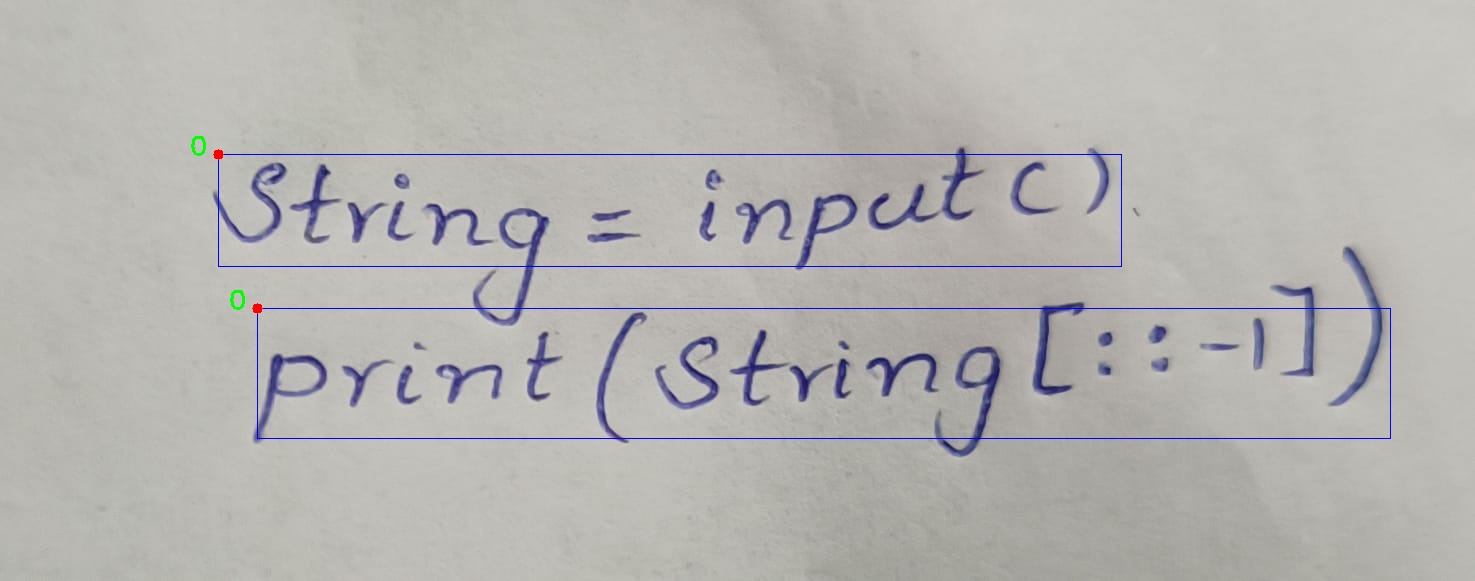 String = input()
print(String[::-1])